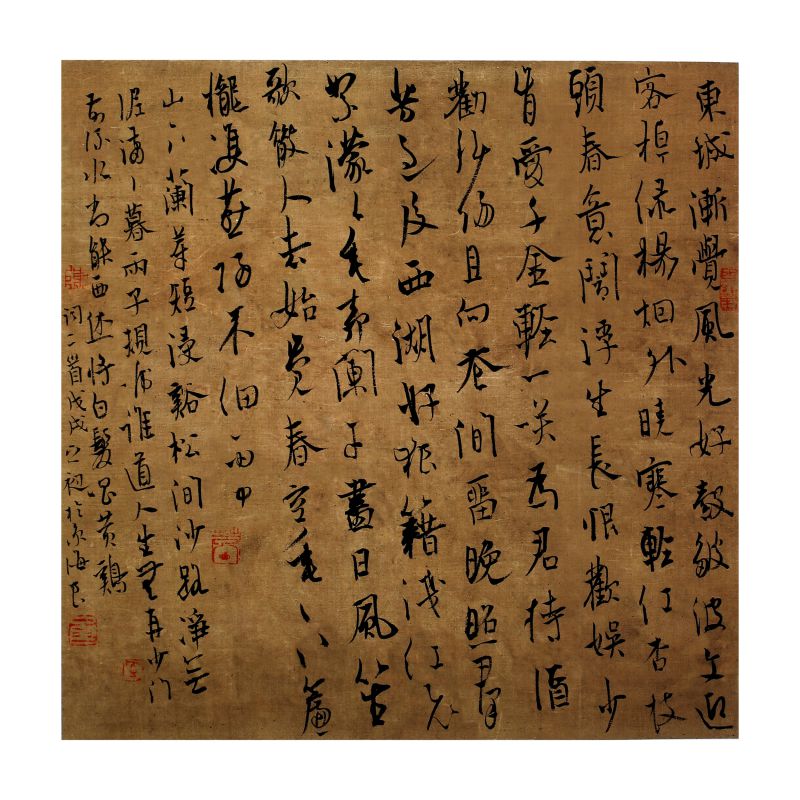 東城漸覺風光好縠皺波文迎
客棹綠楊烟外曉寒輕紅杏枝
頭春意鬧浮生長恨歡娛少
肯愛千金輕一笑爲君持酒
勸斜陽且向花間留晚照群
芳過後西湖好狼藉殘紅飛
絮濛々垂柳闌干盡日風笙
歌散人去始覺春空垂下簾
櫳雙燕歸來細雨中
山下蘭芽短浸谿松間沙路淨無
泥瀟々暮雨子規啼誰道人生無再少門
前流水尚能西休將白髮唱黃鷄
詞二首戊戌之初於京海